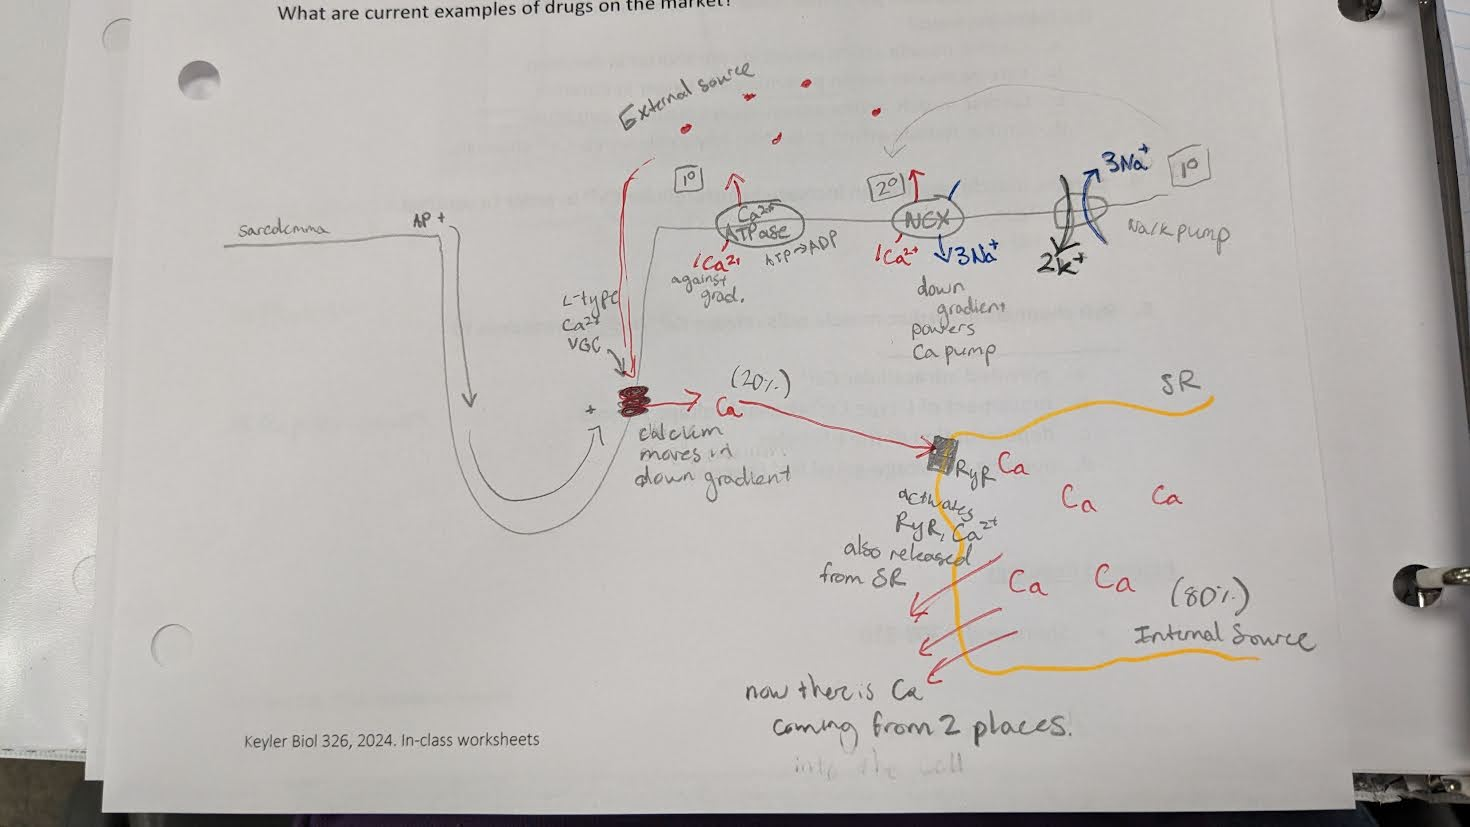 What are current examples of drugs on the market?
External source
1°
2°
3Na+
1°
sarcolemma
AP +
Ca2+
ATPase
NEX
Na/K pump
1Ca2+
ATP→ADP
1Ca2+
3Na+
2K+
against
grad.
down
gradient
powers
Ca pump
L-type
Ca2+
VGC
+
Ca
(20%)
calcium
moves in
down gradient
SR
RyR
Ca
Ca
Ca
activates
RyR, Ca2+
also released
from SR
Ca
Ca
(80%)
Internal Source
now there is Ca
coming from 2 places!
into the cell
Keyler Biol 326, 2024. In-class worksheets